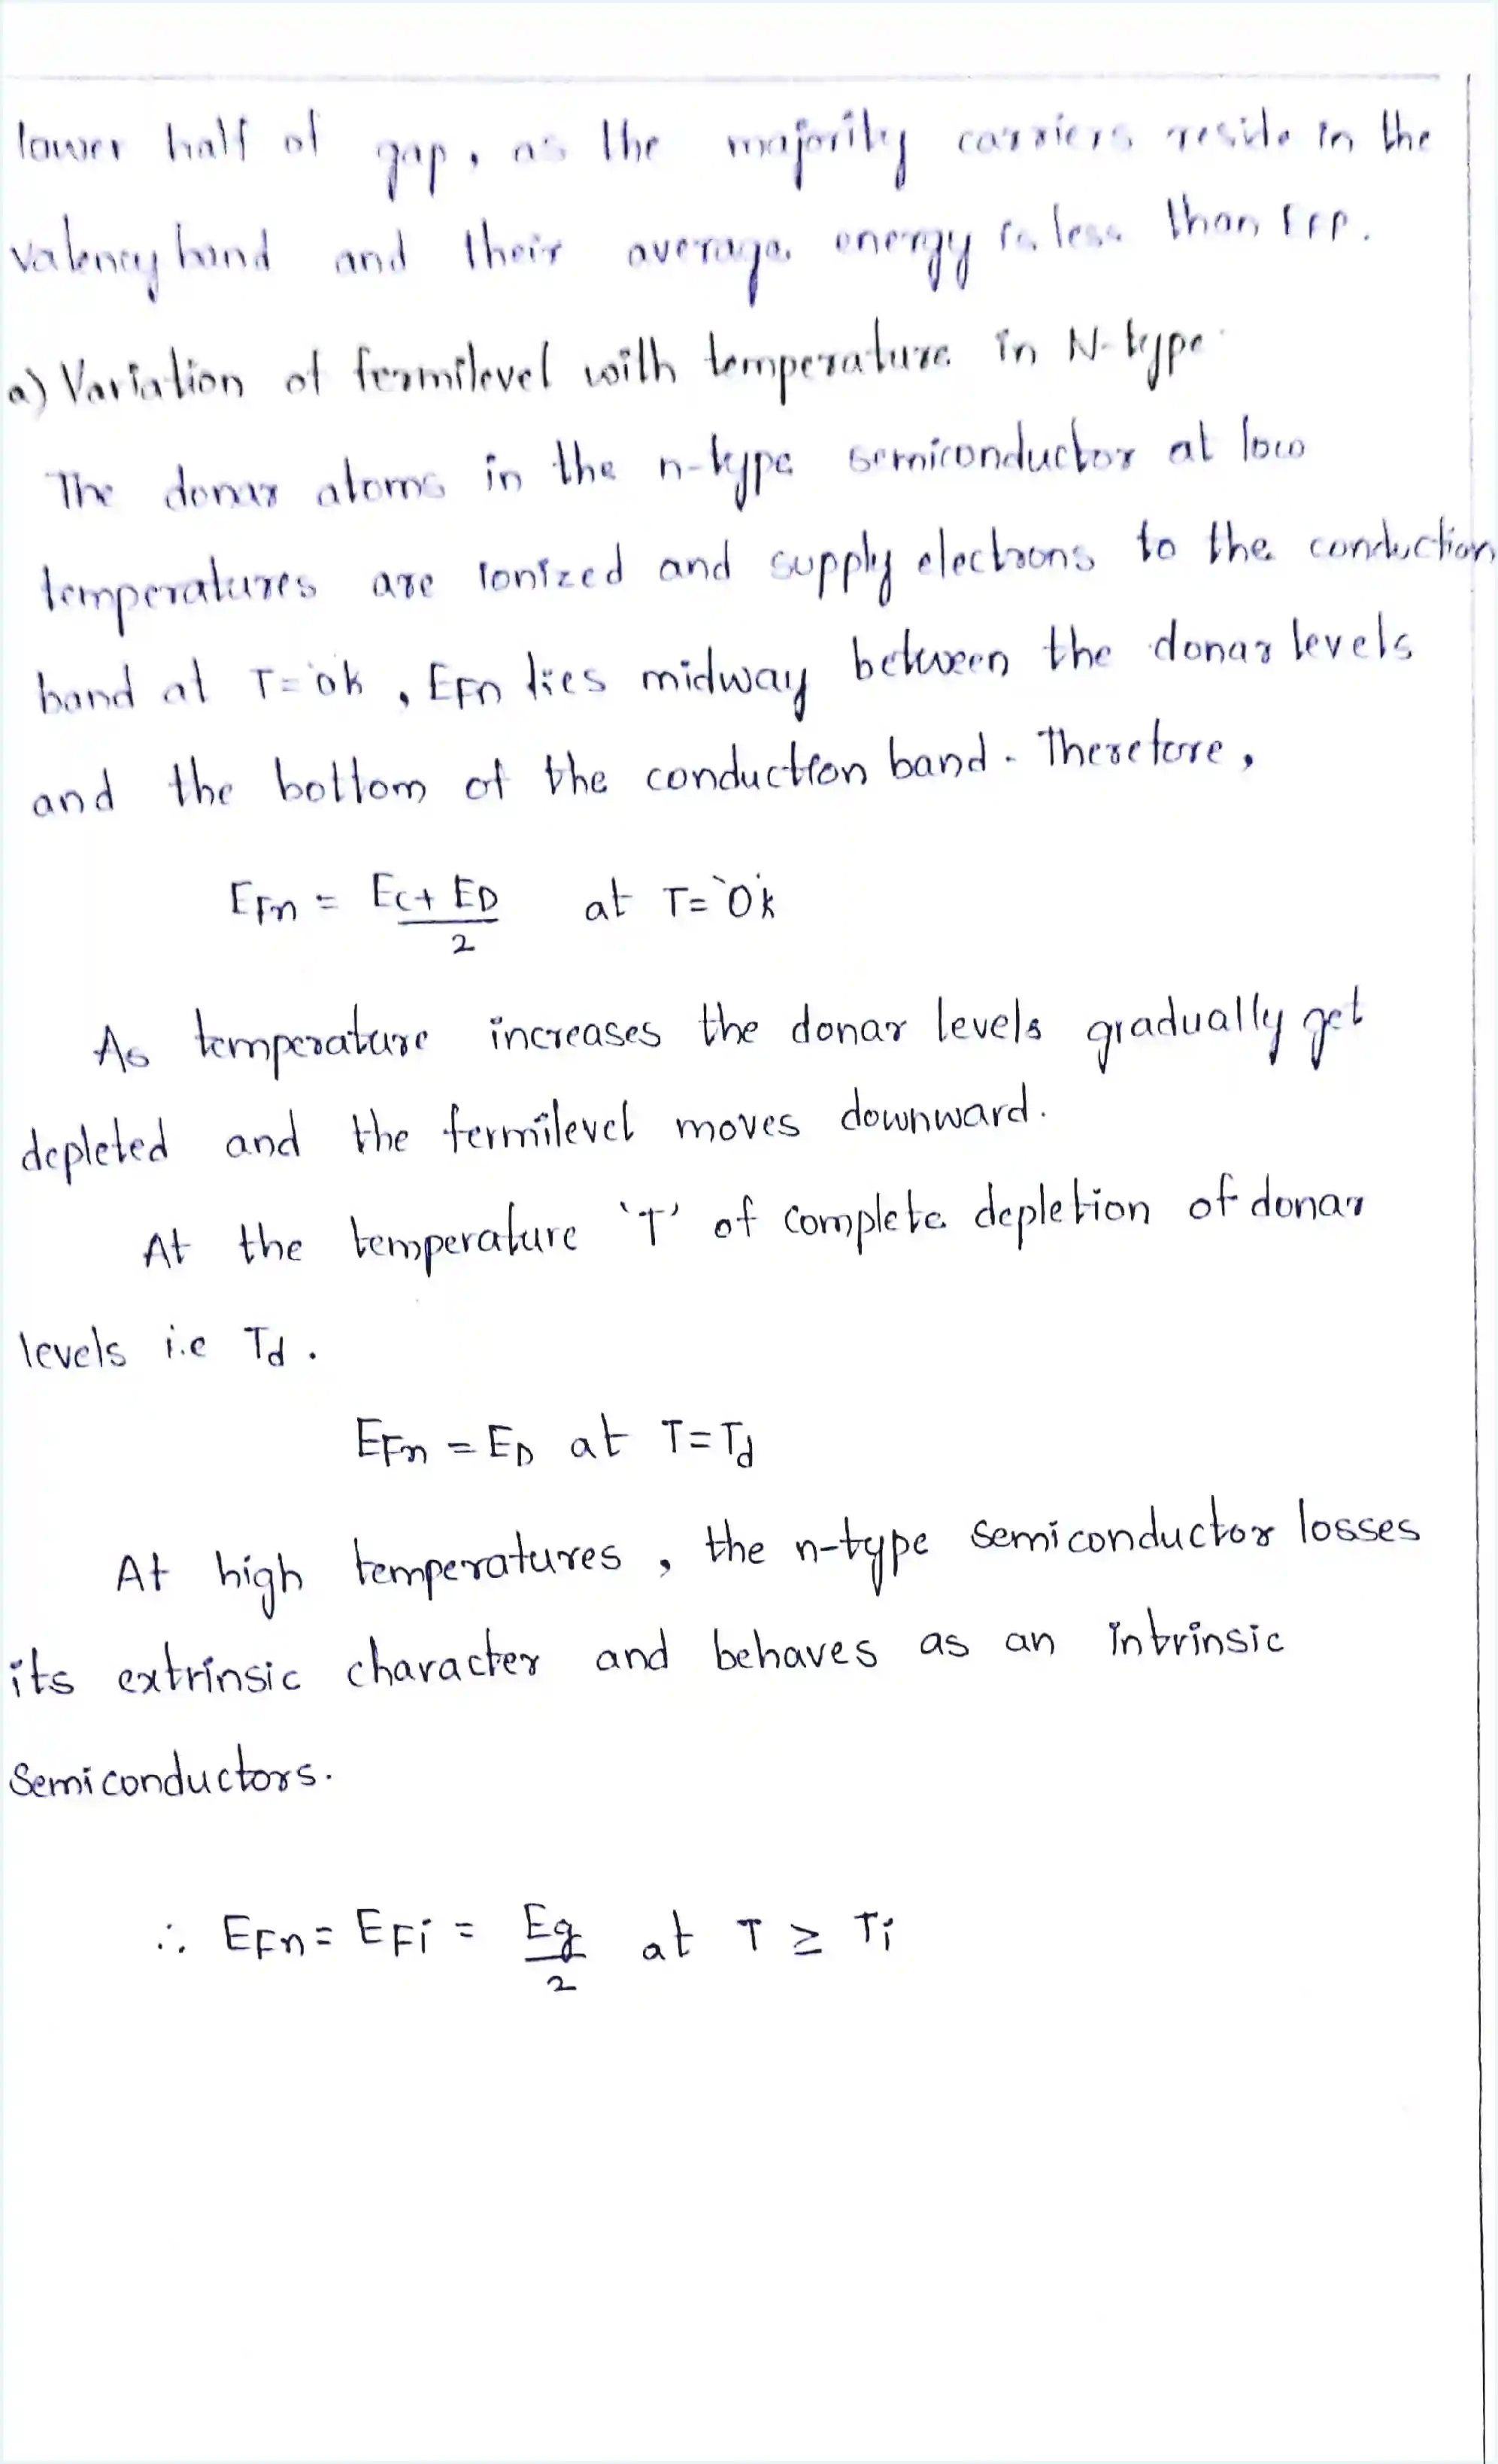 lower half of gap, as the majority carriers reside in the
valency band and their average energy is less than EFP.
a) Variation of fermilevel with temperature in N-type
The donar atoms in the n-type semiconductor at low
temperatures are ionized and supply electrons to the conduction
band at T=0°K, EFn lies midway between the donar levels
and the bottom of the conduction band. Therefore,
EFn = EC+ED/2 at T=0°K
As temperature increases the donar levels gradually get
depleted and the fermilevel moves downward.
At the temperature 'T' of complete depletion of donar
levels i.e Td.
EFn = ED at T=Td
At high temperatures, the n-type semiconductor losses
its extrinsic character and behaves as an intrinsic
semiconductors.
∴ EFn = EFi = Eg/2 at T ≥ Ti